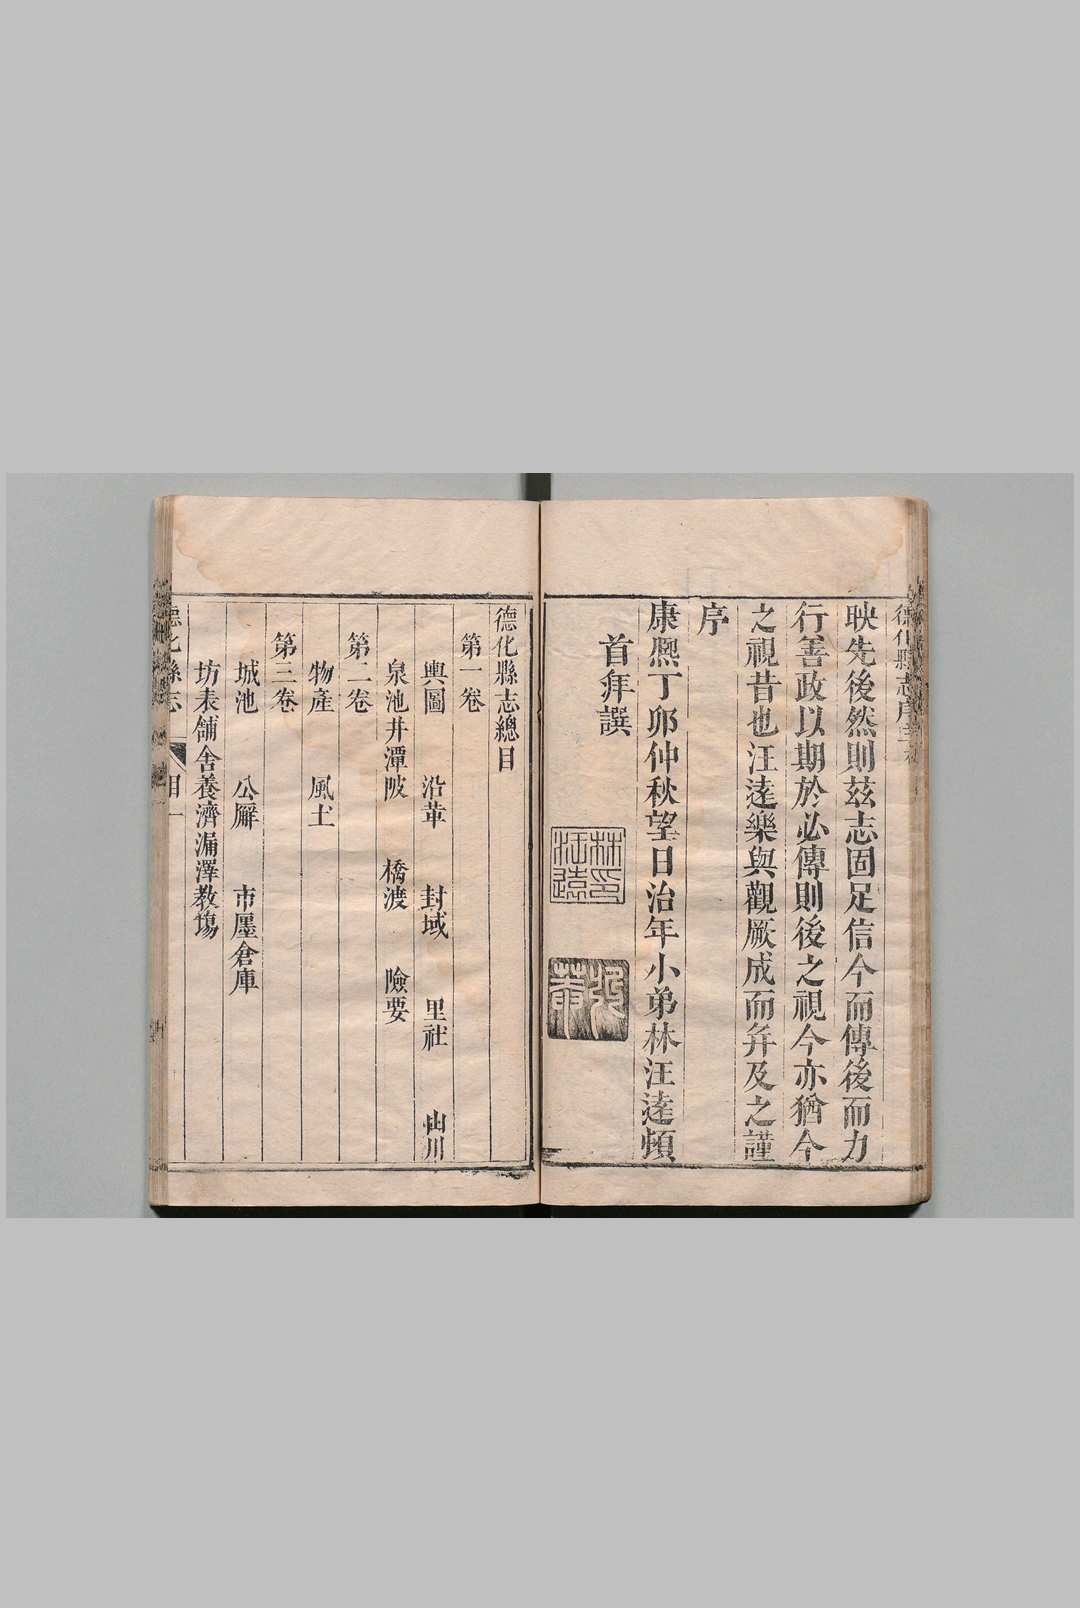 德化縣志序
映先後然則玆志固足信今而傳後而力
行善政以期於必傳則後之視今亦猶今
之視昔也汪逺樂與觀厥成而并及之謹
序
康熈丁夘仲秋望日治年小弟林汪逺頓
首拜譔
林印汪遠
德化縣志總目
第一卷
輿圖 沿革 封域 里社 山川
泉池井潭陂 橋渡 險要
第二卷
物產 風土
第三卷
城池 公廨 市廛倉庫
坊表舖舍養濟漏澤教塲
德化縣志 目 一